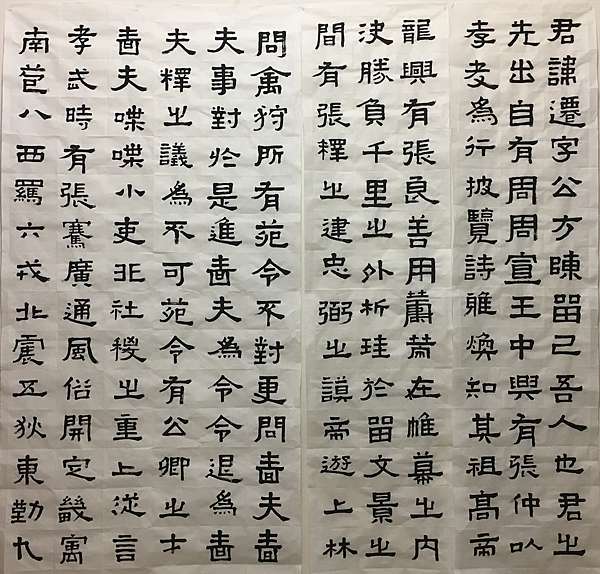 君諱遷字公方陳留己吾人也君之
先出自有周周宣王中興有張仲以
孝友為行披覽詩雅煥知其祖高帝
龍興有張良善用籌策在帷幕之內
決勝負千里之外析珪於留文景之
間有張釋之建忠弼之謨帝遊上林
問禽狩所有苑令不對更問嗇夫嗇
夫事對於是進嗇夫為令令退為嗇
夫釋之議為不可苑令有公卿之才
嗇夫喋喋小吏非社稷之重上從言
孝武時有張騫廣通風俗開定畿寓
南苞八西羈六戎北震五狄東勤九